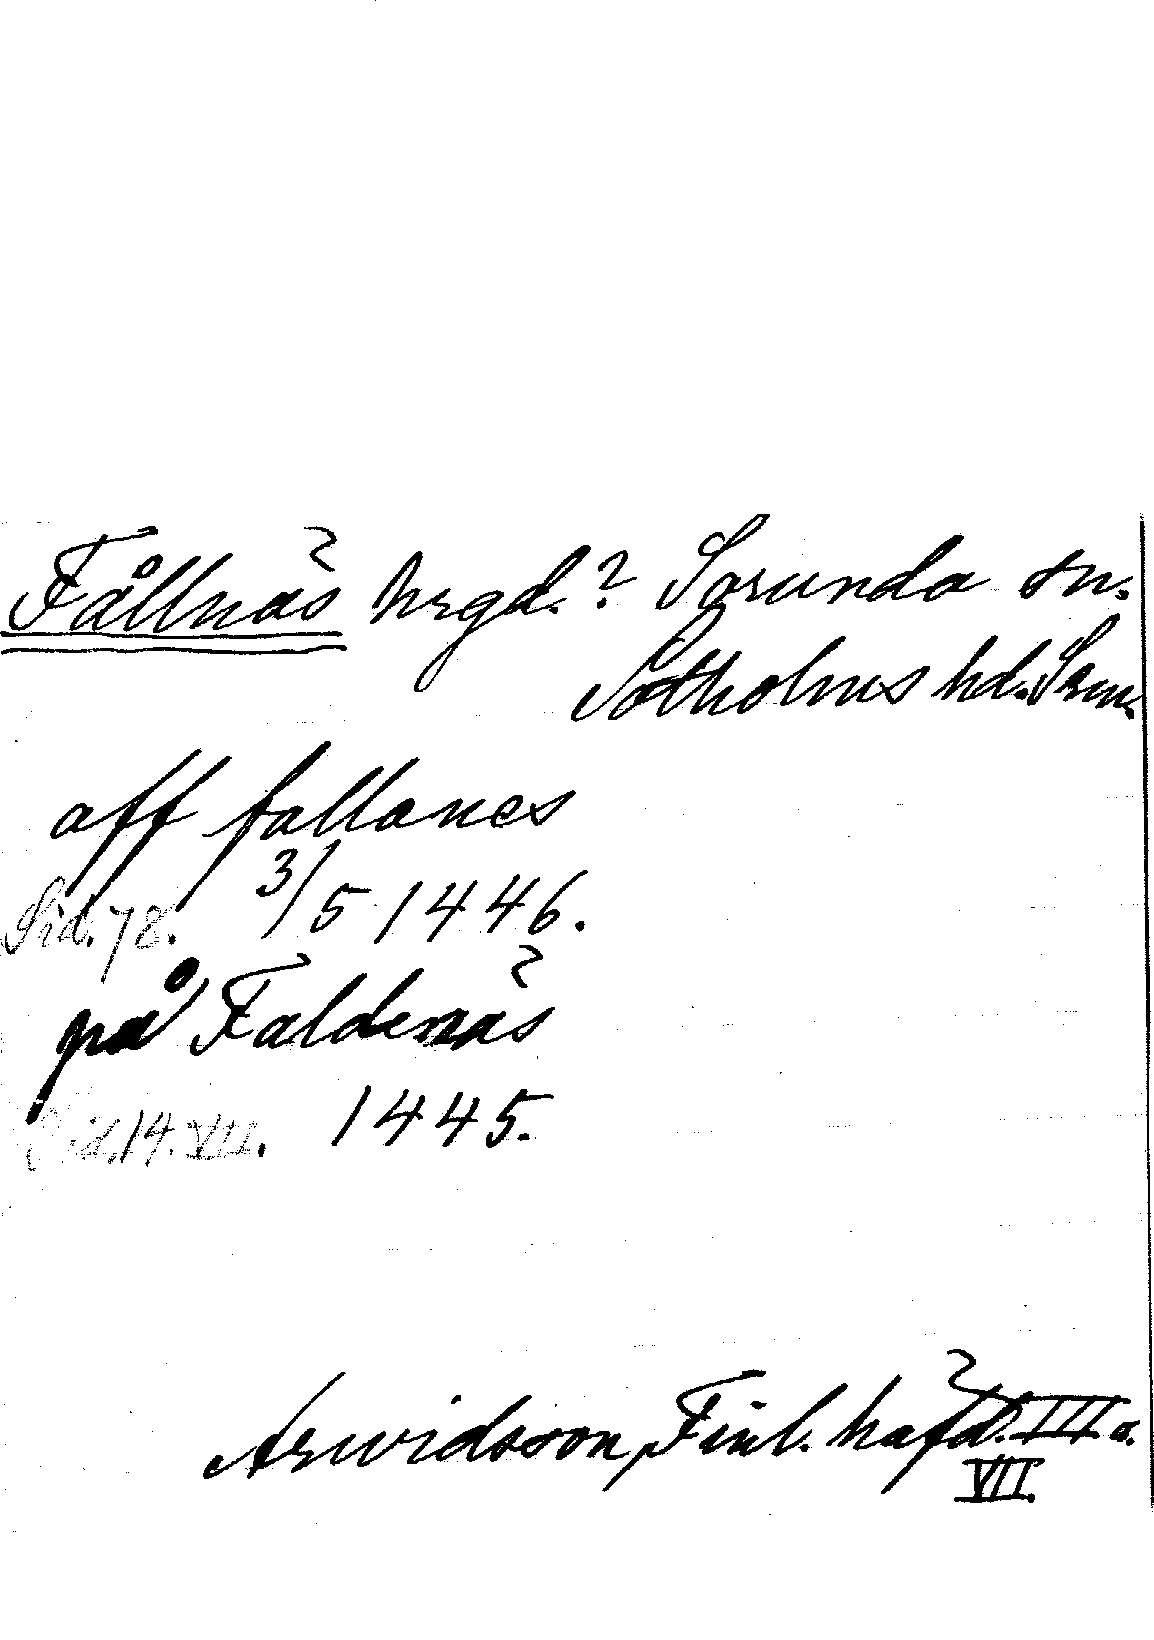 Fållnäs hrgd.? Sorunda sn.
Sotholms hd. Srm.
aff fallanes
Sid. 78. 3/5 1446.
på Faldenäs
Sid. 14. VII. 1445.
Arwidsson, Finl. häfd. III o.
VII.